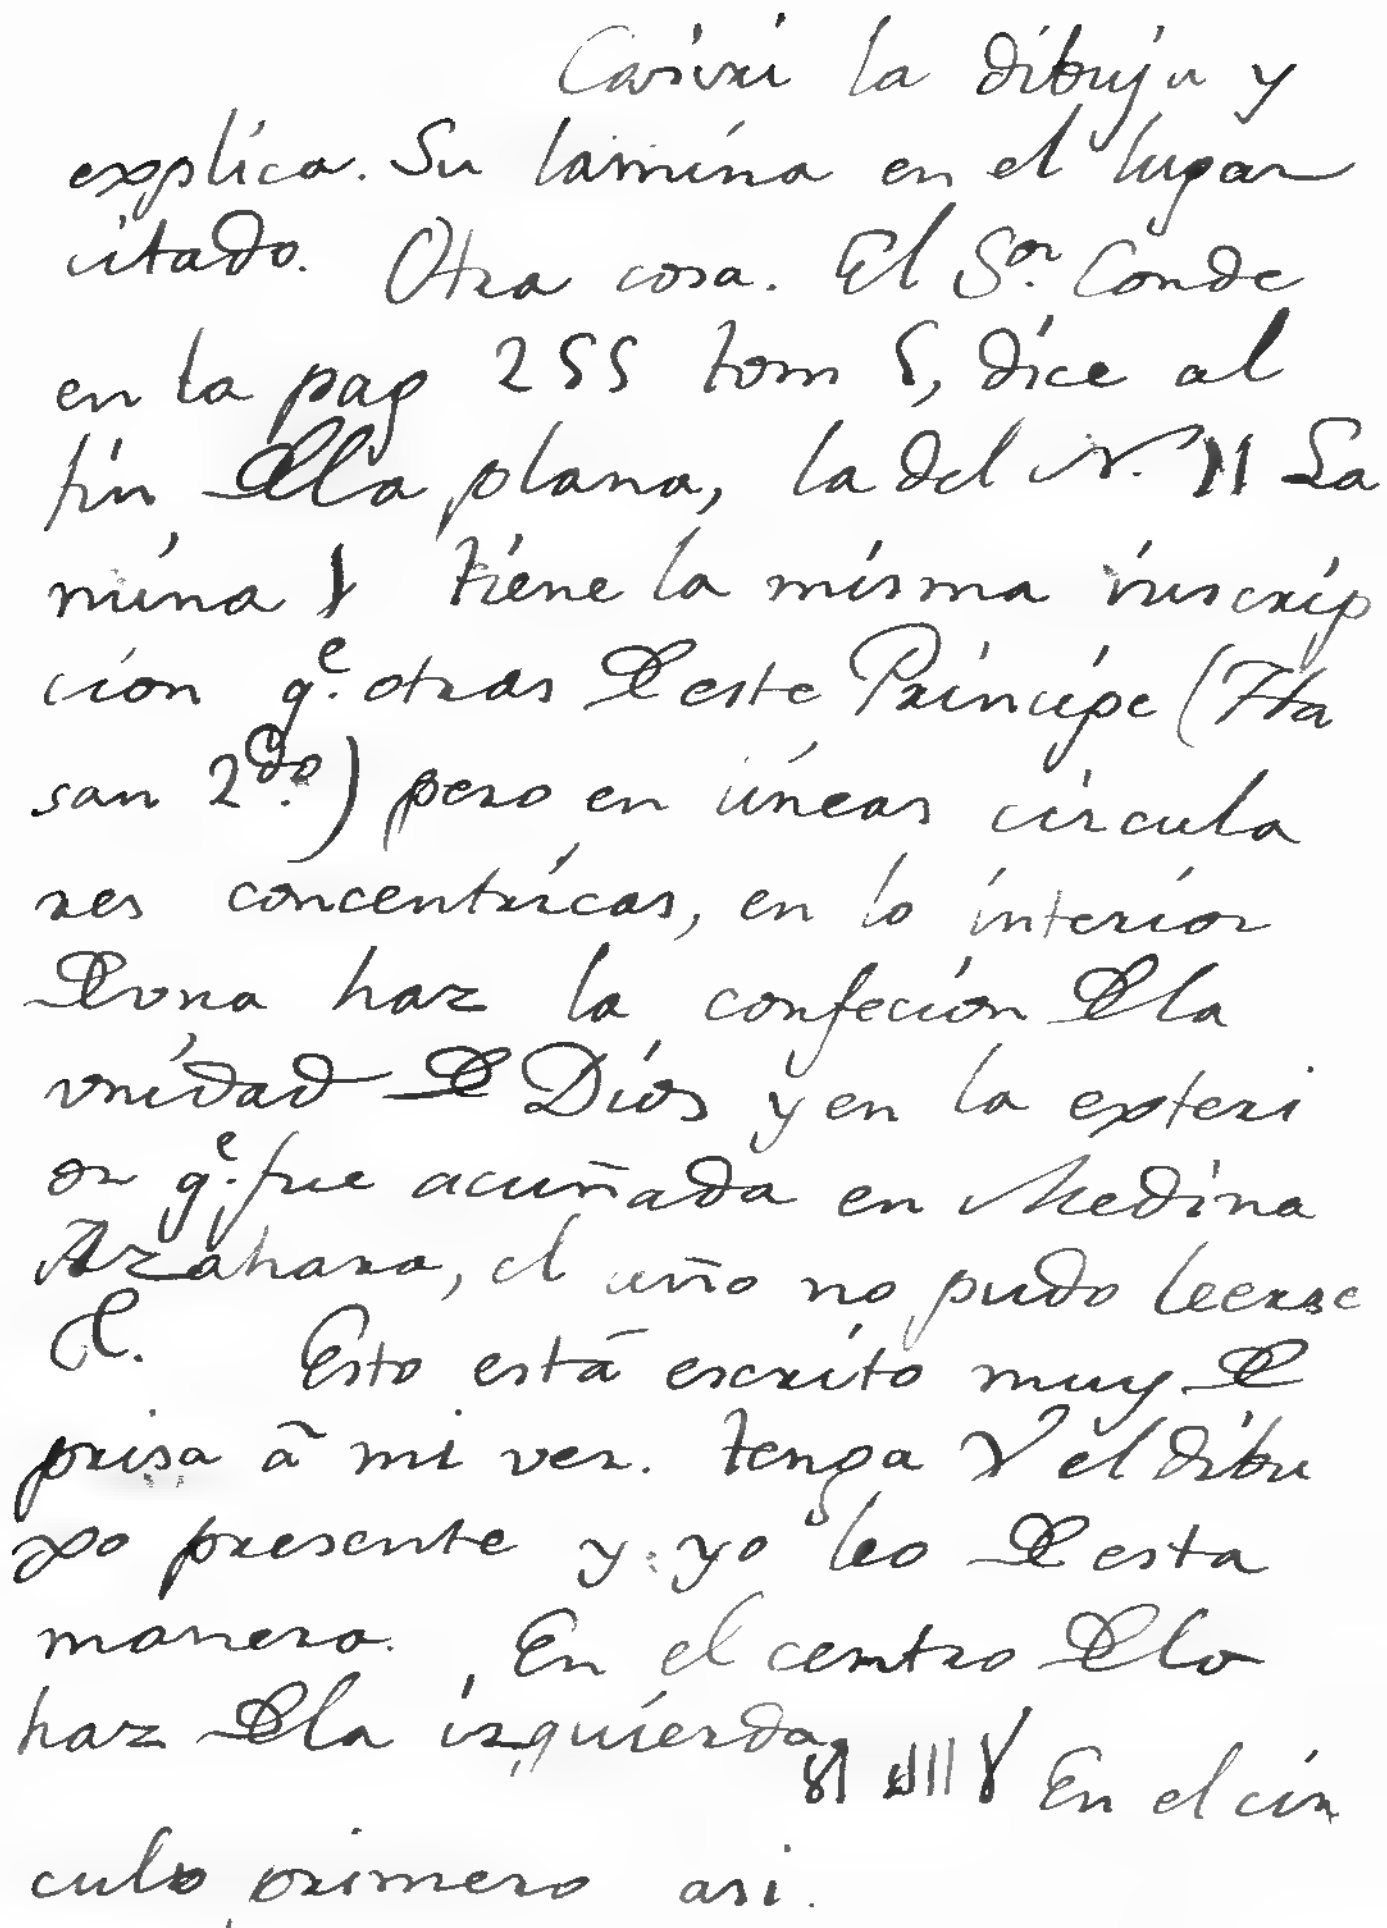 Casiri la dibuja y
explica. Su lamina en el lugar
citado. Otra cosa. El Sor. Conde
en la pag 255 tom 5, dice al
fin dela plana, la del N. 11 La
mina 1 tiene la misma inscrip
cion qe. otras de este Principe (Ha
san 2do.) pero en líneas circula
res concentricas, en lo interior
de vna haz la confecion dela
vnidad de Dios y en la exteri
or qe. fue acuñada en Medina
Azahara, el año no pudo leerse
&. Esto está escrito muy de
prisa â mi ver. tenga V el dibu
xo presente y yo leo de esta
manera. En el centro dela
haz dela izquierda En el cir
culo primero asi.